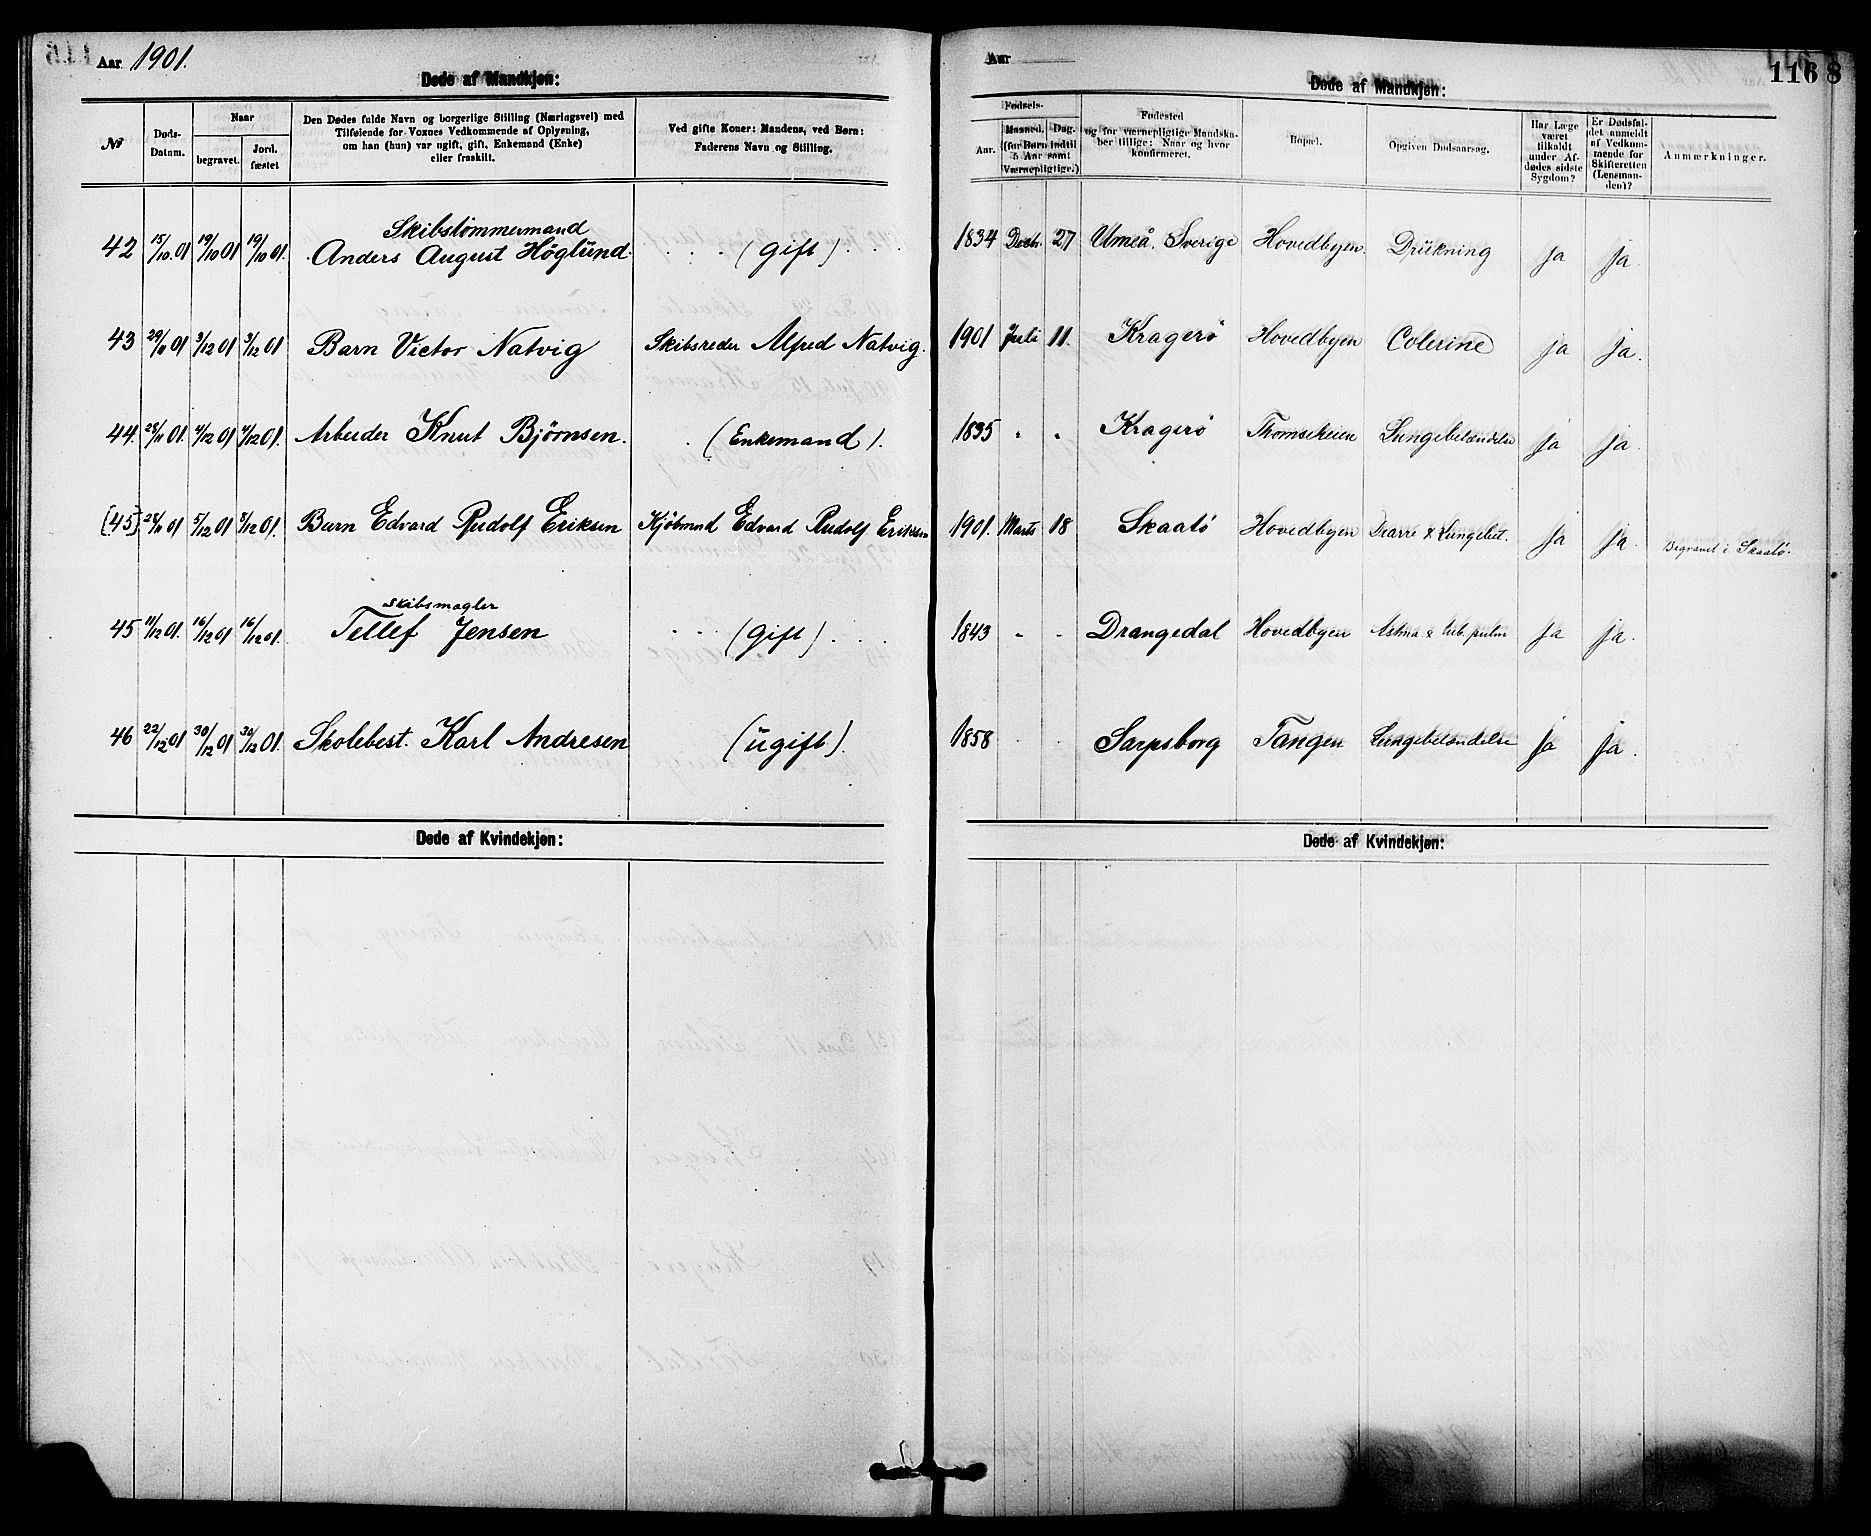 Aar 1901.
Døde af Mandkjøn:
№
Døds-Datum.
Naar
begravet.
Jord. fæstet
Den Dødes fulde Navn og borgerlige Stilling (Næringsvei) med
Tilføiende for Voxnes Vedkommende af Oplysning,
om han (hun) var ugift, gift, Enkemand (Enke)
eller fraskilt.
Ved gifte Koner: Mandens, ved Børn:
Faderens Navn og Stilling.
42 15/10 01 19/10 01 19/10 01. Skibstømmermand
Anders August Höglund. (gift).
43 29/11 01 3/12 01 3/12 01 Barn Victor Natvig Skibsreder Alfred Natvig.
44. 28/11 01. 4/12 01 4/12 01. Arbeider Knut Bjørnsen. (Enkemand).
[45] 28/11 01 5/12 01 5/12 01. Barn Edvard Rudolf Eriksen Kjöbmnd Edvard Rudolf Eriksen
45 11/12 01. 16/12 01 16/12 01. Skibsmagler
Tellef Jensen (gift)
46 22/12 01 30/12 01 30/12 01. Skolebest. Karl Andresen (ugift).
Døde af Kvindekjøn:
Aar
116
8
Døde af Mandkjøn:
Fødsels-
Aar.
Maaned. Dag.
(for Børn indtil
5 Aar samt
Værnepligtige.)
Fødested
og for værnepligtige Mandska-
ber tillige: Naar og hvor
konfirmeret.
Bopæl.
Opgiven Dødsaarsag.
Har Læge
været
tilkaldt
under Af-
dødes sidste
Sygdom?
Er Dødsfal-
det anmeldt
af Vedkom-
mende for
Skifteretten
(Lensman-
den)?
Anmærkninger.
1834 Decbr. 27 Umeå. Sverige Hovedbyen. Drukning ja ja.
1901 Juli 11. Kragerö Hovedbyen Colerine ja ja.
1835 " " Kragerö Thomseheien Lungebetændelse ja ja.
1901. Marts 18 Skaatö Hovedbyen Diarre & Lungebet. ja ja. Begravet i Skaatö.
1843 " " Drangedal Hovedbyen Astma & tub. pulm ja ja.
1858 Sarpsborg Tangen Lungebetændelse ja ja.
Døde af Kvindekjøn: